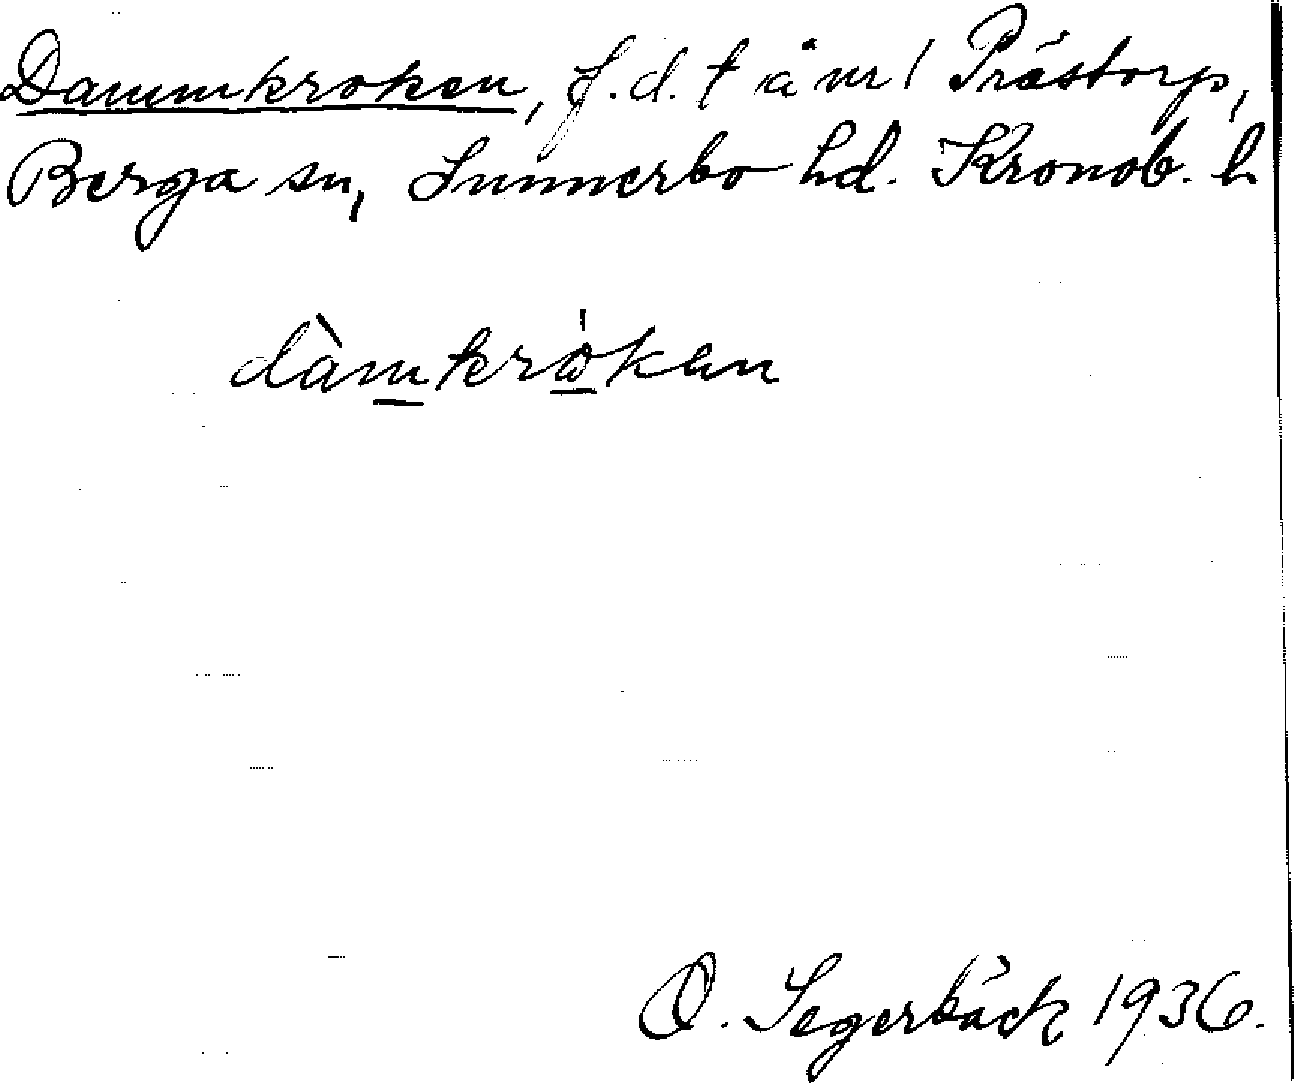 Dammkroken, f.d. t å nr 1 Prästorp,
Berga sn, Sunnerbo hd. Kronob. l.
dàmkrökan
O. Segerbäck 1936.